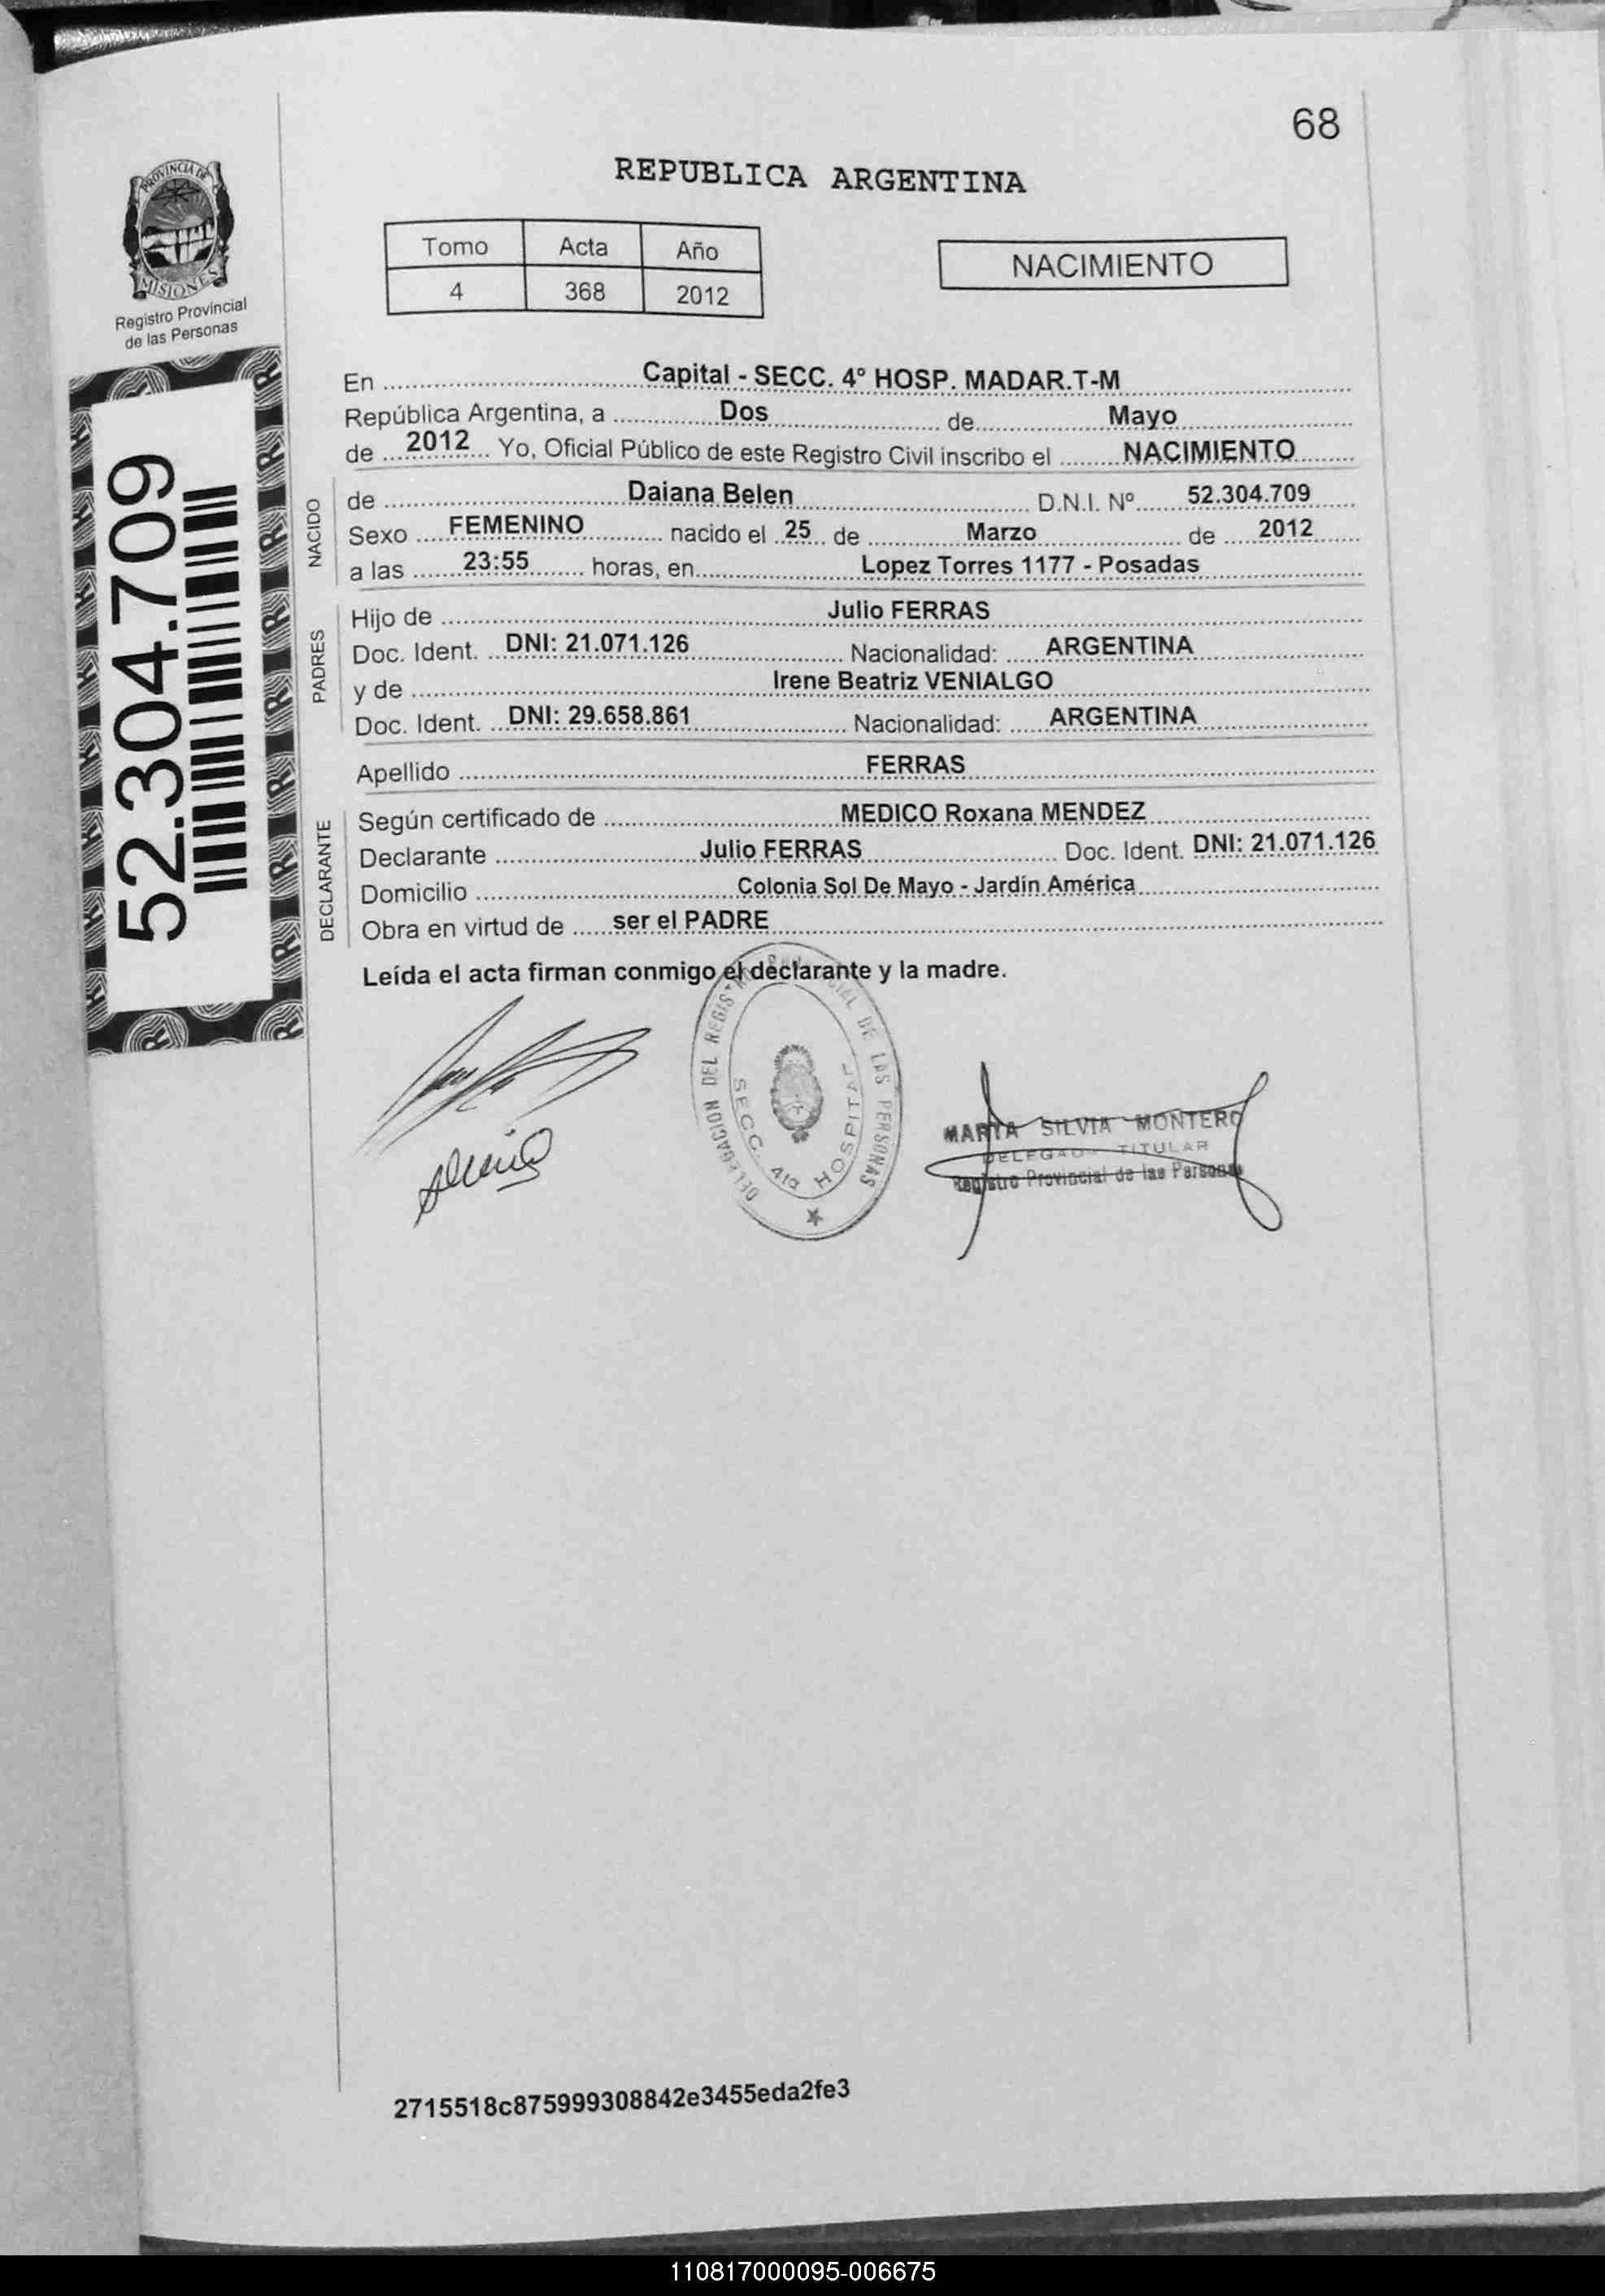 68
REPUBLICA ARGENTINA
PROVINCIA DE
MISIONES
Registro Provincial
de las Personas
Tomo Acta Año
4 368 2012
NACIMIENTO
52.304.709
En Capital - SECC. 4° HOSP. MADAR.T-M
República Argentina, a Dos de Mayo
de 2012 Yo, Oficial Público de este Registro Civil inscribo el NACIMIENTO
NACIDO
de Daiana Belen D.N.I. Nº 52.304.709
Sexo FEMENINO nacido el 25 de Marzo de 2012
a las 23:55 horas, en Lopez Torres 1177 - Posadas
PADRES
Hijo de Julio FERRAS
Doc. Ident. DNI: 21.071.126 Nacionalidad: ARGENTINA
y de Irene Beatriz VENIALGO
Doc. Ident. DNI: 29.658.861 Nacionalidad: ARGENTINA
Apellido FERRAS
DECLARANTE
Según certificado de MEDICO Roxana MENDEZ
Declarante Julio FERRAS Doc. Ident. DNI: 21.071.126
Domicilio Colonia Sol De Mayo - Jardín América
Obra en virtud de ser el PADRE
Leída el acta firman conmigo el declarante y la madre.
DELEGACION DEL REGIS DE LAS PERSONAS
SECC. 4ta HOSPITAL
SILVIA MONTERO
TITULAR
Registro Provincial de las Personas
2715518c875999308842e3455eda2fe3
110817000095-006675